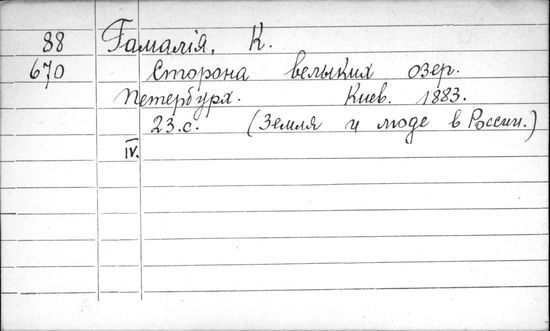 88 Гамалія, К.
670 Сторона велыких озер.
Петербурх. Киев. 1883.
23.с. (Земля и люде в России.)
IV.